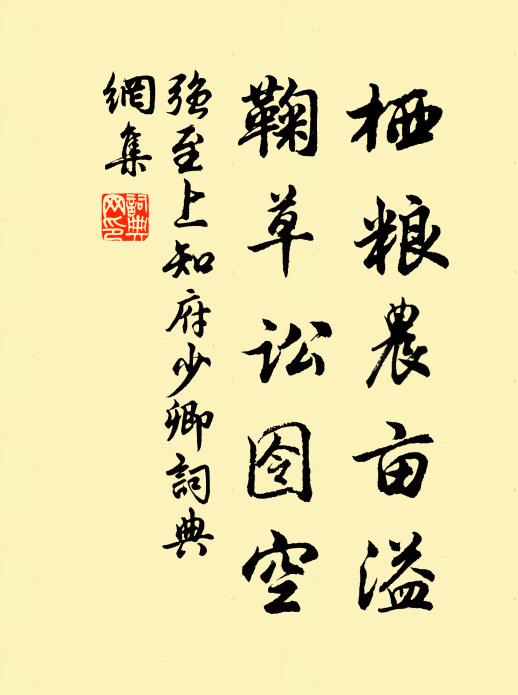 栖粮農亩溢
鞠草讼囹空
强至上知府少卿詞典
網集
詞典
网印